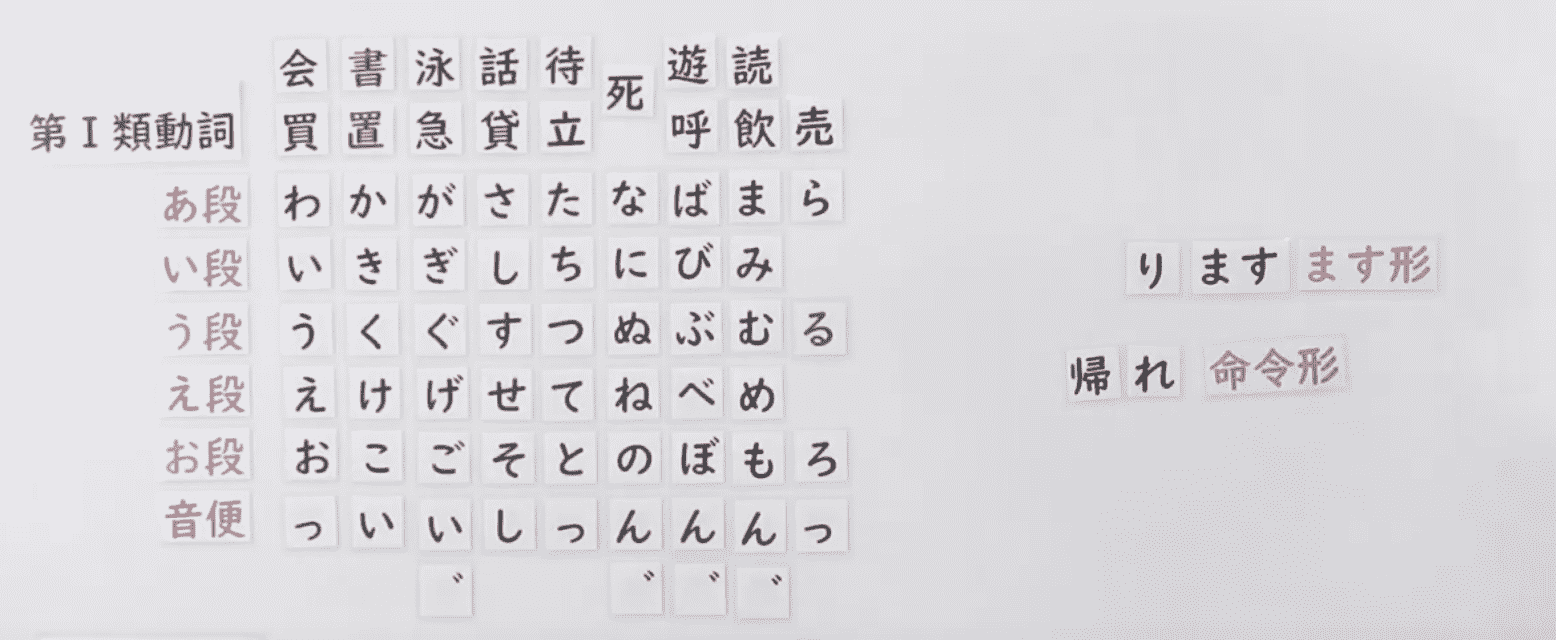 会 書 泳 話 待 死 遊 読
第Ⅰ類動詞 買 置 急 貸 立 呼 飲 売
あ段 わ か が さ た な ば ま ら
い段 い き ぎ し ち に び み り ます ます形
う段 う く ぐ す つ ぬ ぶ む る
え段 え け げ せ て ね べ め 帰 れ 命令形
お段 お こ ご そ と の ぼ も ろ
音便 っ い い し っ ん ん ん っ
゛ ゛ ゛ ゛